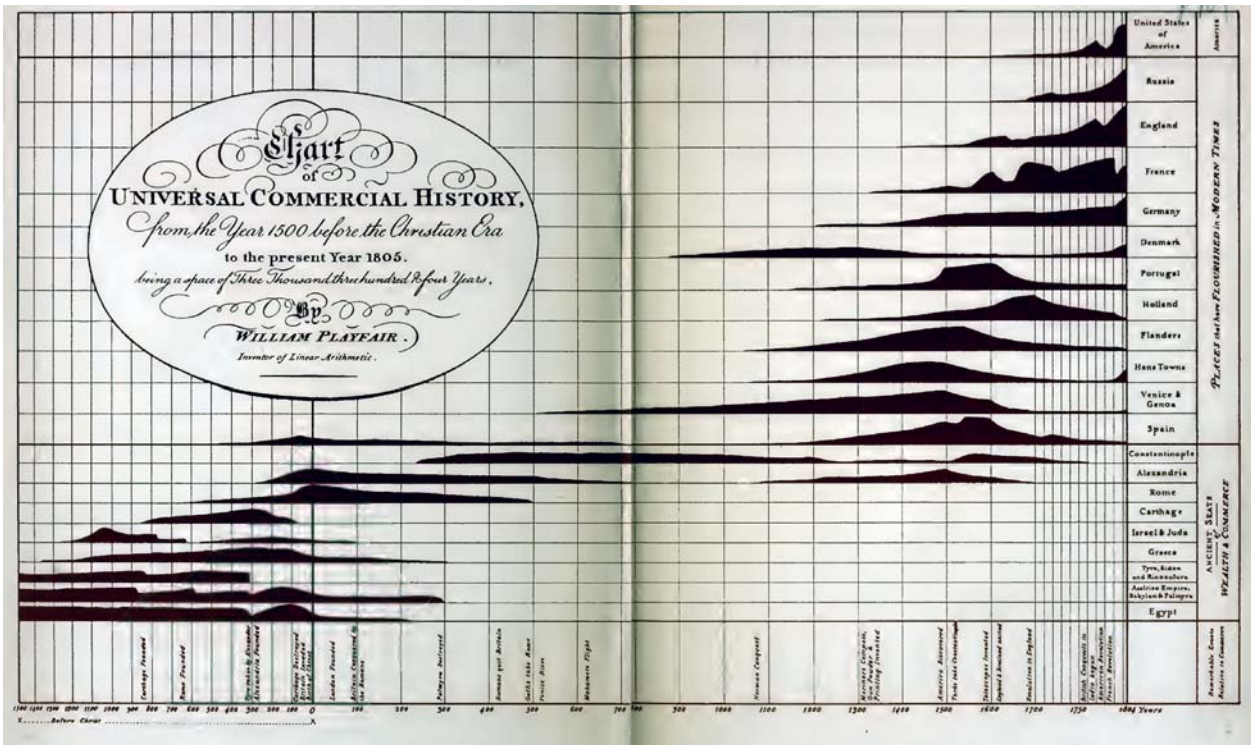 Chart
of
UNIVERSAL COMMERCIAL HISTORY,
from, the Year 1500 before the Christian Era
to the present Year 1805.
being a space of Three Thousand three hundred & four Years.
By
WILLIAM PLAYFAIR.
Inventor of Linear Arithmetic.
United States
of
America
Russia
England
France
Germany
Denmark
Portugal
Holland
Flanders
Hans Towns
Venice &
Genoa
Spain
Constantinople
Alexandria
Rome
Carthage
Israel & Juda
Greece
Tyre, Sidon
Egypt
America
PLACES that have FLOURISHED in MODERN TIMES
ANCIENT SEATS
of
WEALTH & COMMERCE
Remarkable Events
Relative to Commerce
Carthage Founded
Rome Founded
Tyre taken by Alexander
Alexandria Founded
Carthage Destroyed
Britain Invaded
Birth of Christ
London Founded
Britain Conquered by
the Romans
Palmyra Destroyed
Romans quit Britain
Goths take Rome
Venice Rises
Mahomets Flight
Norman Conquest
Mariners Compass,
Gun Powder &
Printing Invented
America Discovered
Turks take Constantinople
Telescopes Invented
England & Scotland united
Revolution in England
British Conquests in
India began
American Revolution
French Revolution
1500 1400 1300 1200 1100 1000 900 800 700 600 500 400 300 200 100 0 100 200 300 400 500 600 700 800 900 1000 1100 1200 1300 1400 1500 1600 1700 1750 1804 Years
X Before Christ X